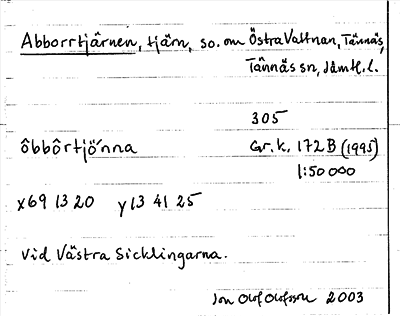 Abborrtjärnen, tjärn, so. om Östra Vattnan, Tännäs,
Tännäs sn, Jämtl. l.
305
ôbbôrtjö́nna Gr.k. 172 B (1995)
1:50 000
x69 13 20 y13 41 25
Vid Västra Sicklingarna.
Jon Olof Olofsson 2003